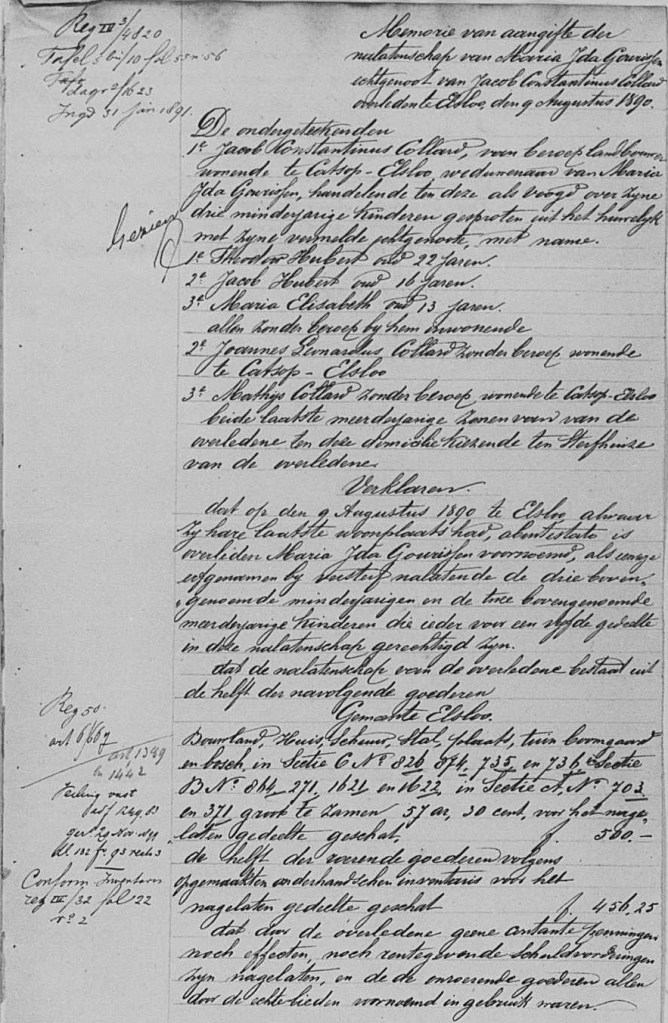 Reg IV 3/4820
Tafel 3 bis/10 fol 53 n 56
Ingd 31 Jan 1891.
Memorie van aangifte der
nalatenschap van Maria Ida Gourissen
echtgenoot van Jacob Constantinus Collard
overleden te Elsloo, den 9 Augustus 1890.
De ondergeteekenden
1e Jacob Konstantinus Collard, van beroep landbouwer
wonende te Catsop-Elsloo, weduwenaar van Maria
Ida Gourissen, handelende ten deze als voogd over zyne
drie minderjarige kinderen gesproten uit het huwelyk
met zyne vermelde echtgenoote, met name.
Gezien
1e Theodor Hubert oud 22 Jaren.
2e Jacob Hubert oud 16 Jaren.
3e Maria Elisabeth oud 13 Jaren.
allen zonder beroep by hem inwonende
2e Joannes Leonardus Collard zonder beroep wonende
te Catsop-Elsloo
3e Mathijs Collard zonder beroep, wonende te Catsop-Elsloo
beide laatste meerderjarige zonen van van de
overledene ten deze domicilie kiezende ten Sterfhuize
van de overledene.
Verklaren.
dat op den 9 Augustus 1890 te Elsloo, alwaar
zy hare laatste woonplaats had, abintestato is
overleden Maria Ida Gourissen voornoemd, als eenige
erfgenamen by versterf nalatende de drie boven
genoemde minderjarigen en de twee bovengenoemde
meerderjarige kinderen die ieder voor een vyfde gedeelte
in deze nalatenschap geregtigd zyn.
dat de nalatenschap van de overledene bestaat uit
de helft der navolgende goederen
Gemeente Elsloo.
Reg 50.
art 1349
en 1442
Bouwland, Huis, Schuur, Stal, plaats, tuin boomgaard
en bosch, in Sectie C No 826, 874, 735, en 736, Sectie
B No 864, 271, 1621 en 1622, in Sectie A, No 703
en 371 groot te zamen 57 ar, 30 cent, voor het nage,
laten gedeelte geschat, f. 500.-
de helft der roerende goederen volgens
opgemaakten onderhandschen inventaris voor het
nagelaten gedeelte geschat f. 456,25
Conform Inventaris
reg III/32 fol 22
no 2
dat door de overledene geene contante penningen
noch effecten, noch rentegevende Schuldvorderingen
zyn nagelaten, en de de onroerende goederen allen
door de echtelieden voornoemd in gebruik waren.